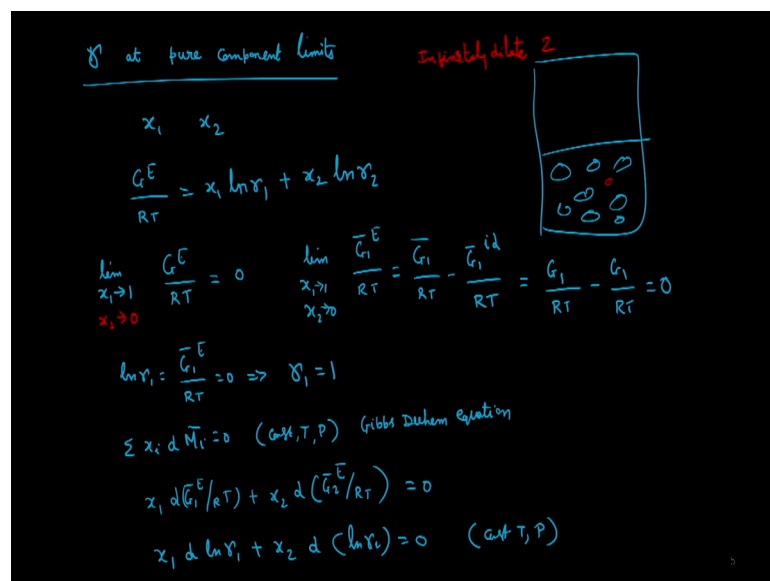 γ at pure component limits
Infinitely dilute 2
x₁ x₂
G^E/RT = x₁ lnγ₁ + x₂ lnγ₂
lim x₁→1 x₂→0 G^E/RT = 0 lim x₁→1 x₂→0 G̅₁^E/RT = G̅₁/RT - G̅₁^id/RT = G₁/RT - G₁/RT = 0
lnγ₁ = G̅₁^E/RT = 0 => γ₁ = 1
Σ xᵢ d M̅ᵢ = 0 (const, T, P) Gibbs Duhem equation
x₁ d(G̅₁^E/RT) + x₂ d(G̅₂^E/RT) = 0
x₁ d lnγ₁ + x₂ d (lnγ₂) = 0 (const T, P)
5